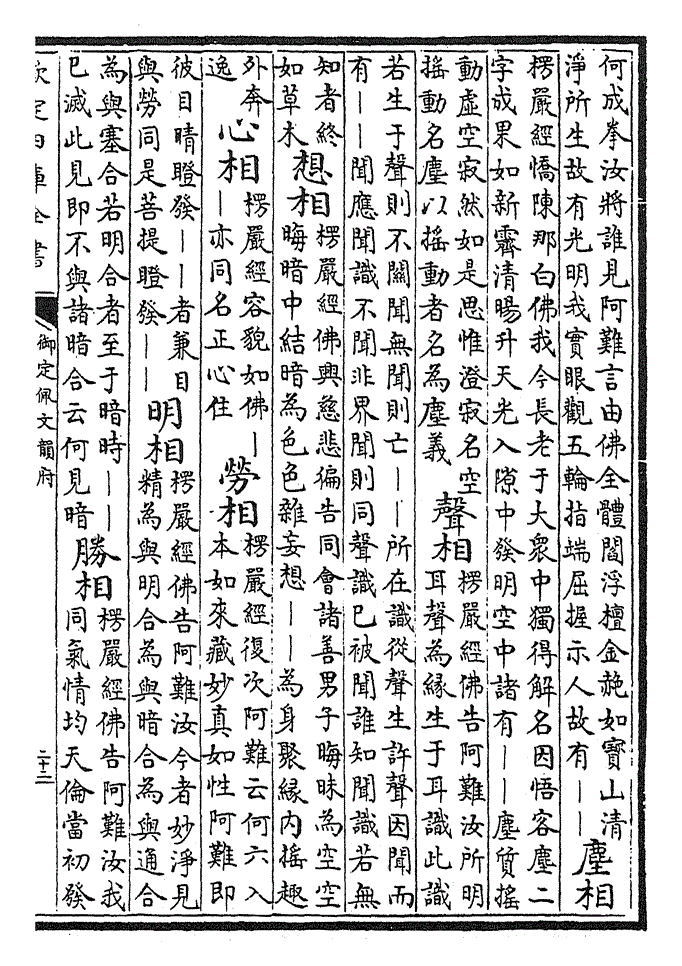 何成拳汝將誰見阿難言由佛全體閻浮檀金赩如寶山清
淨所生故有光明我實眼觀五輪指端屈握示人故有——
塵相
楞嚴經憍陳那白佛我今長老于大衆中獨得解名因悟客塵二
字成果如新霽清暘升天光入隙中發明空中諸有——塵質搖
動虛空寂然如是思惟澄寂名空
搖動名塵以搖動者名為塵義
聲相
楞嚴經佛告阿難汝所明
耳聲為縁生于耳識此識
若生于聲則不關聞無聞則亡——所在識從聲生許聲因聞而
有——聞應聞識不聞非界聞則同聲識已被聞誰知聞識若無
知者終
如草木
想相
楞嚴經佛興慈悲徧告同會諸善男子晦昧為空空
晦暗中結暗為色色雜妄想——為身聚縁内搖趣
外奔
逸
心相
楞嚴經容貌如佛—
—亦同名正心住
勞相
楞嚴經復次阿難云何六入
本如來藏妙真如性阿難即
彼目睛瞪發——者兼目
與勞同是菩提瞪發——
明相
楞嚴經佛告阿難汝今者妙淨見
精為與明合為與暗合為與通合
為與塞合若明合者至于暗時——
已滅此見即不與諸暗合云何見暗
勝相
楞嚴經佛告阿難汝我
同氣情均天倫當初發
欽定四庫全書
御定佩文韻府
二十二